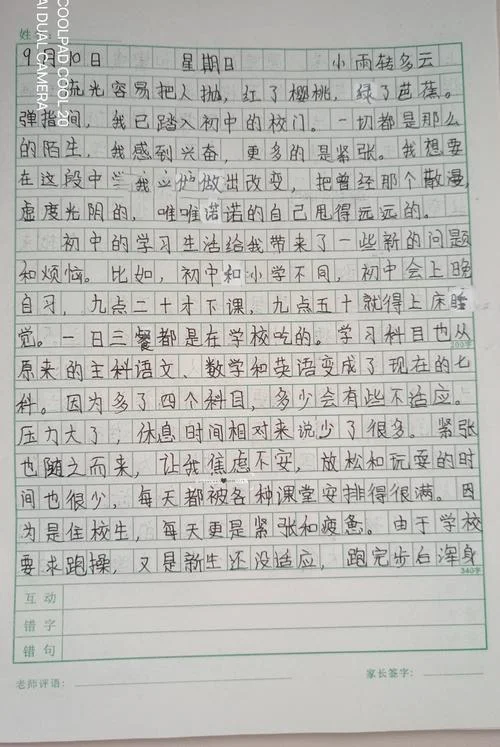 姓
COOLPAD COOL 20
AI DUAL CAMERA
9月10日 星期日 小雨转多云
流光容易把人抛，红了樱桃，绿了芭蕉。
弹指间，我已踏入初中的校门。一切都是那么
的陌生，我感到兴奋，更多的是紧张。我想要
在这段中 我 做出改变，把曾经那个散漫，
虚度光阴的，唯唯诺诺的自己甩得远远的。
初中的学习生活给我带来了一些新的问题
和烦恼。比如，初中和小学不同，初中会上晚
自习，九点二十才下课，九点五十就得上床睡
觉。一日三餐都是在学校吃的。学习科目也从
200字
原来的主科语文、数学和英语变成了现在的七
科。因为多了四个科目，多少会有些不适应。
压力大了，休息时间相对来说少了很多。紧张
也随之而来，让我焦虑不安，放松和玩耍的时
间也很少，每天都被各种课堂安排得很满。因
为是住校生，每天更是紧张和疲惫。由于学校
要求跑操，又是新生还没适应，跑完步后浑身
340字
互动
错字
错句
老师评语：
家长签字：